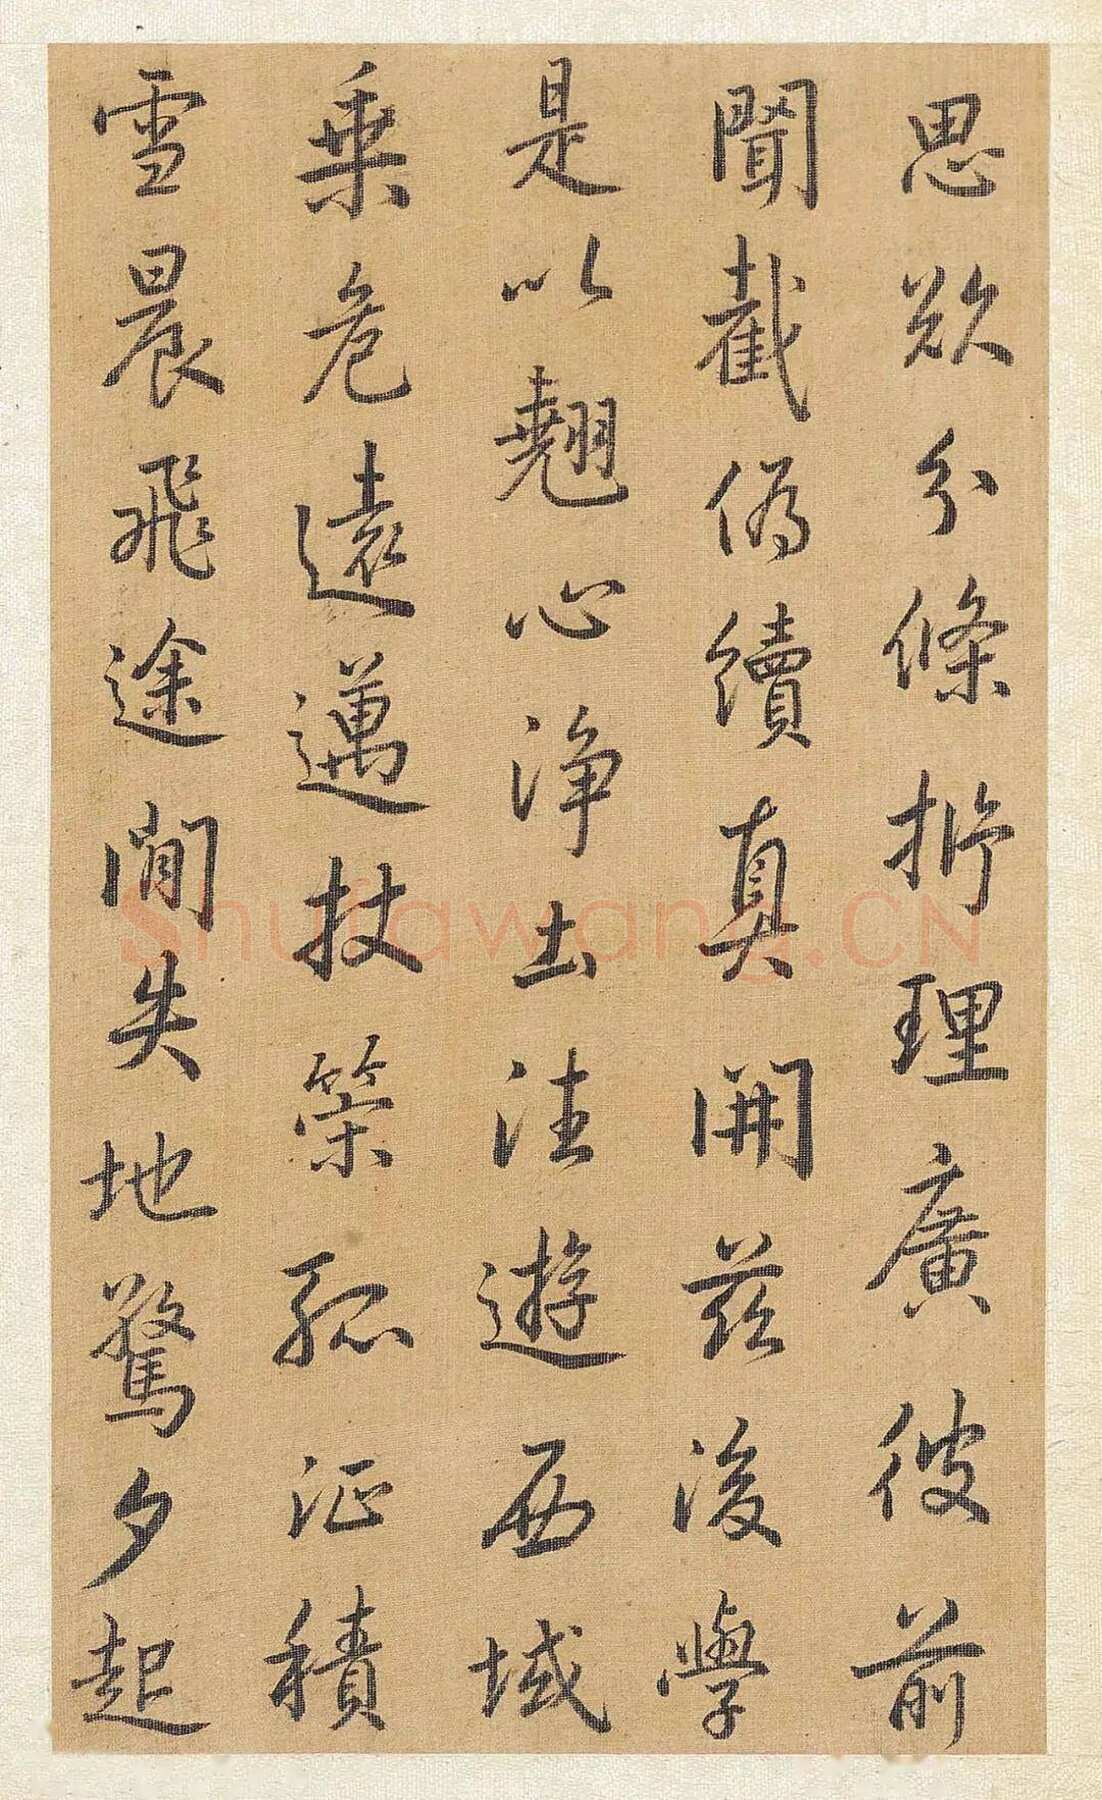 思欲分條析理廣彼前
聞截偽續真開茲後學
是以翹心淨土法遊西域
乘危遠邁杖策孤征積
雪晨飛途閒失地驚夕起
Shufawang.CN